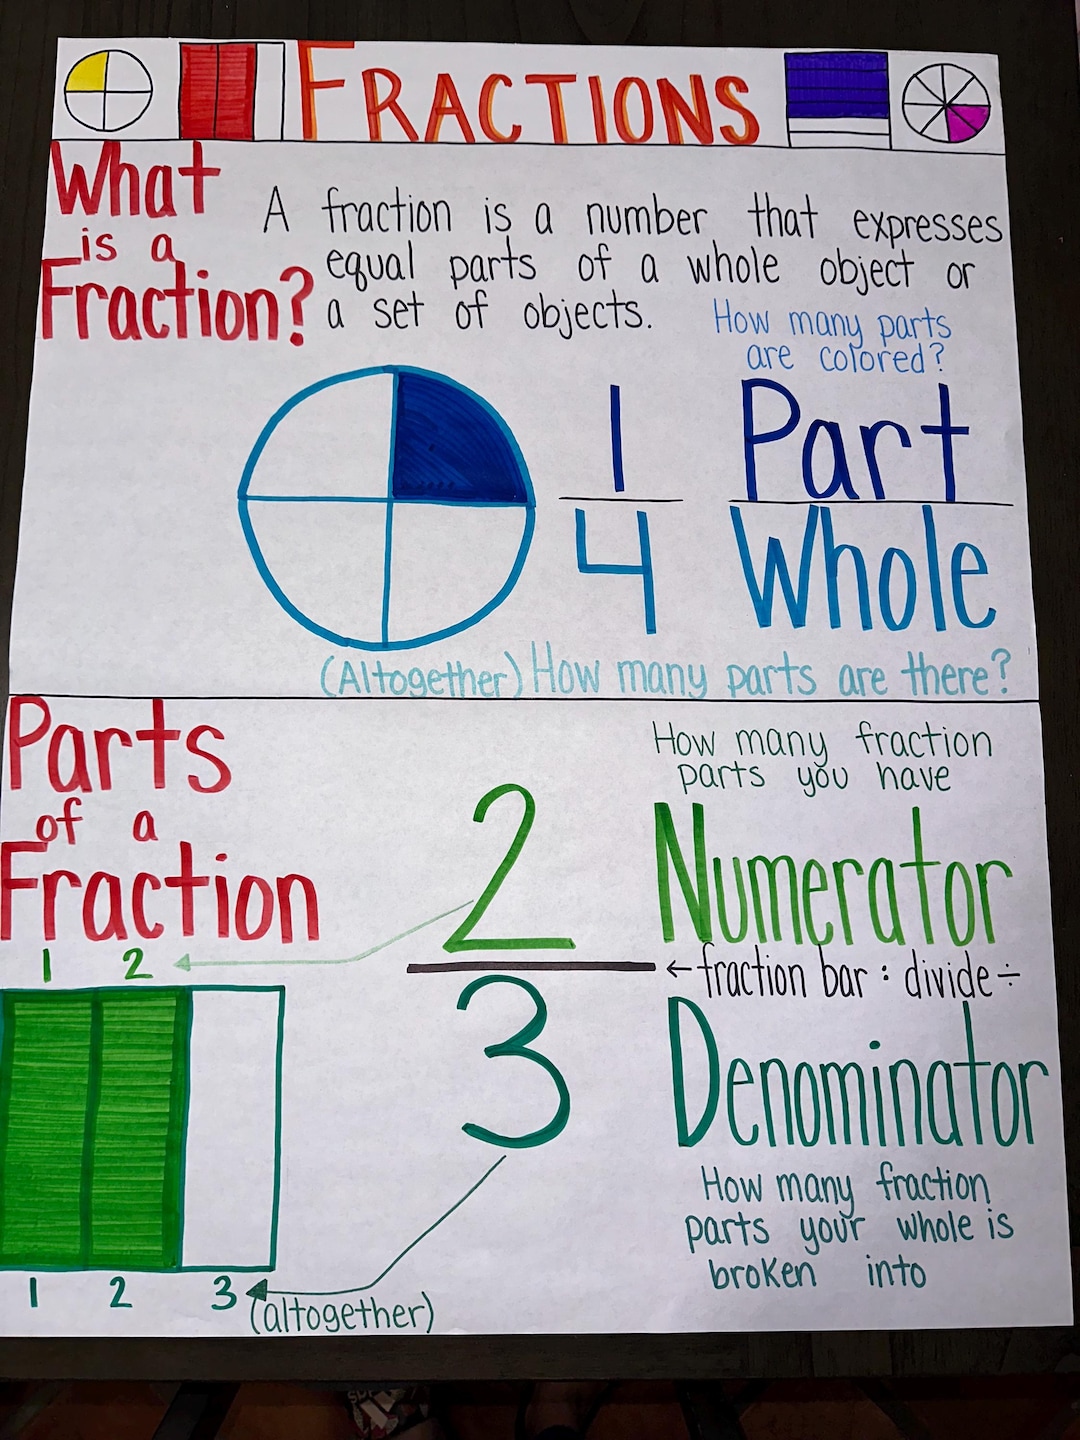 FRACTIONS
What
is a
Fraction?
A fraction is a number that expresses
equal parts of a whole object or
a set of objects.
How many parts
are colored?
1
4
Part
Whole
(Altogether) How many parts are there?
Parts
of a
Fraction
How many fraction
parts you have
2
3
Numerator
←fraction bar : divide ÷
Denominator
How many fraction
parts your whole is
broken into
1 2
1 2 3
(altogether)